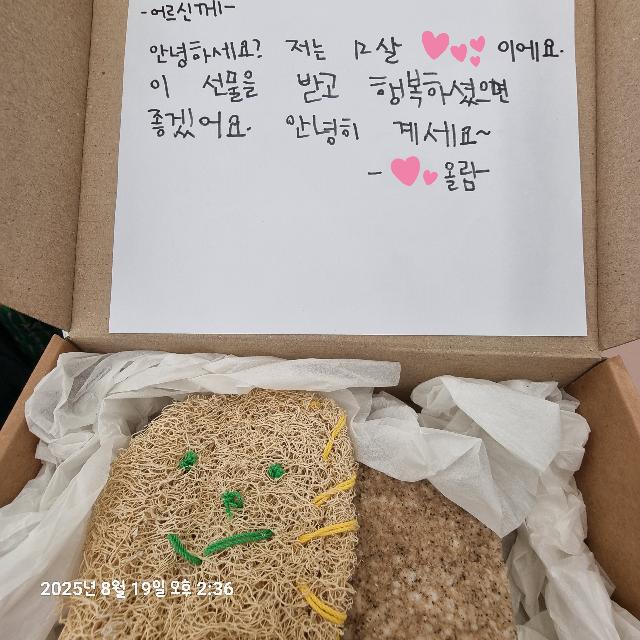 -어르신께-
안녕하세요? 저는 12살 이에요.
이 선물을 받고 행복하셨으면
좋겠어요. 안녕히 계세요~
- 올람-
2025년 8월 19일 오후 2:36